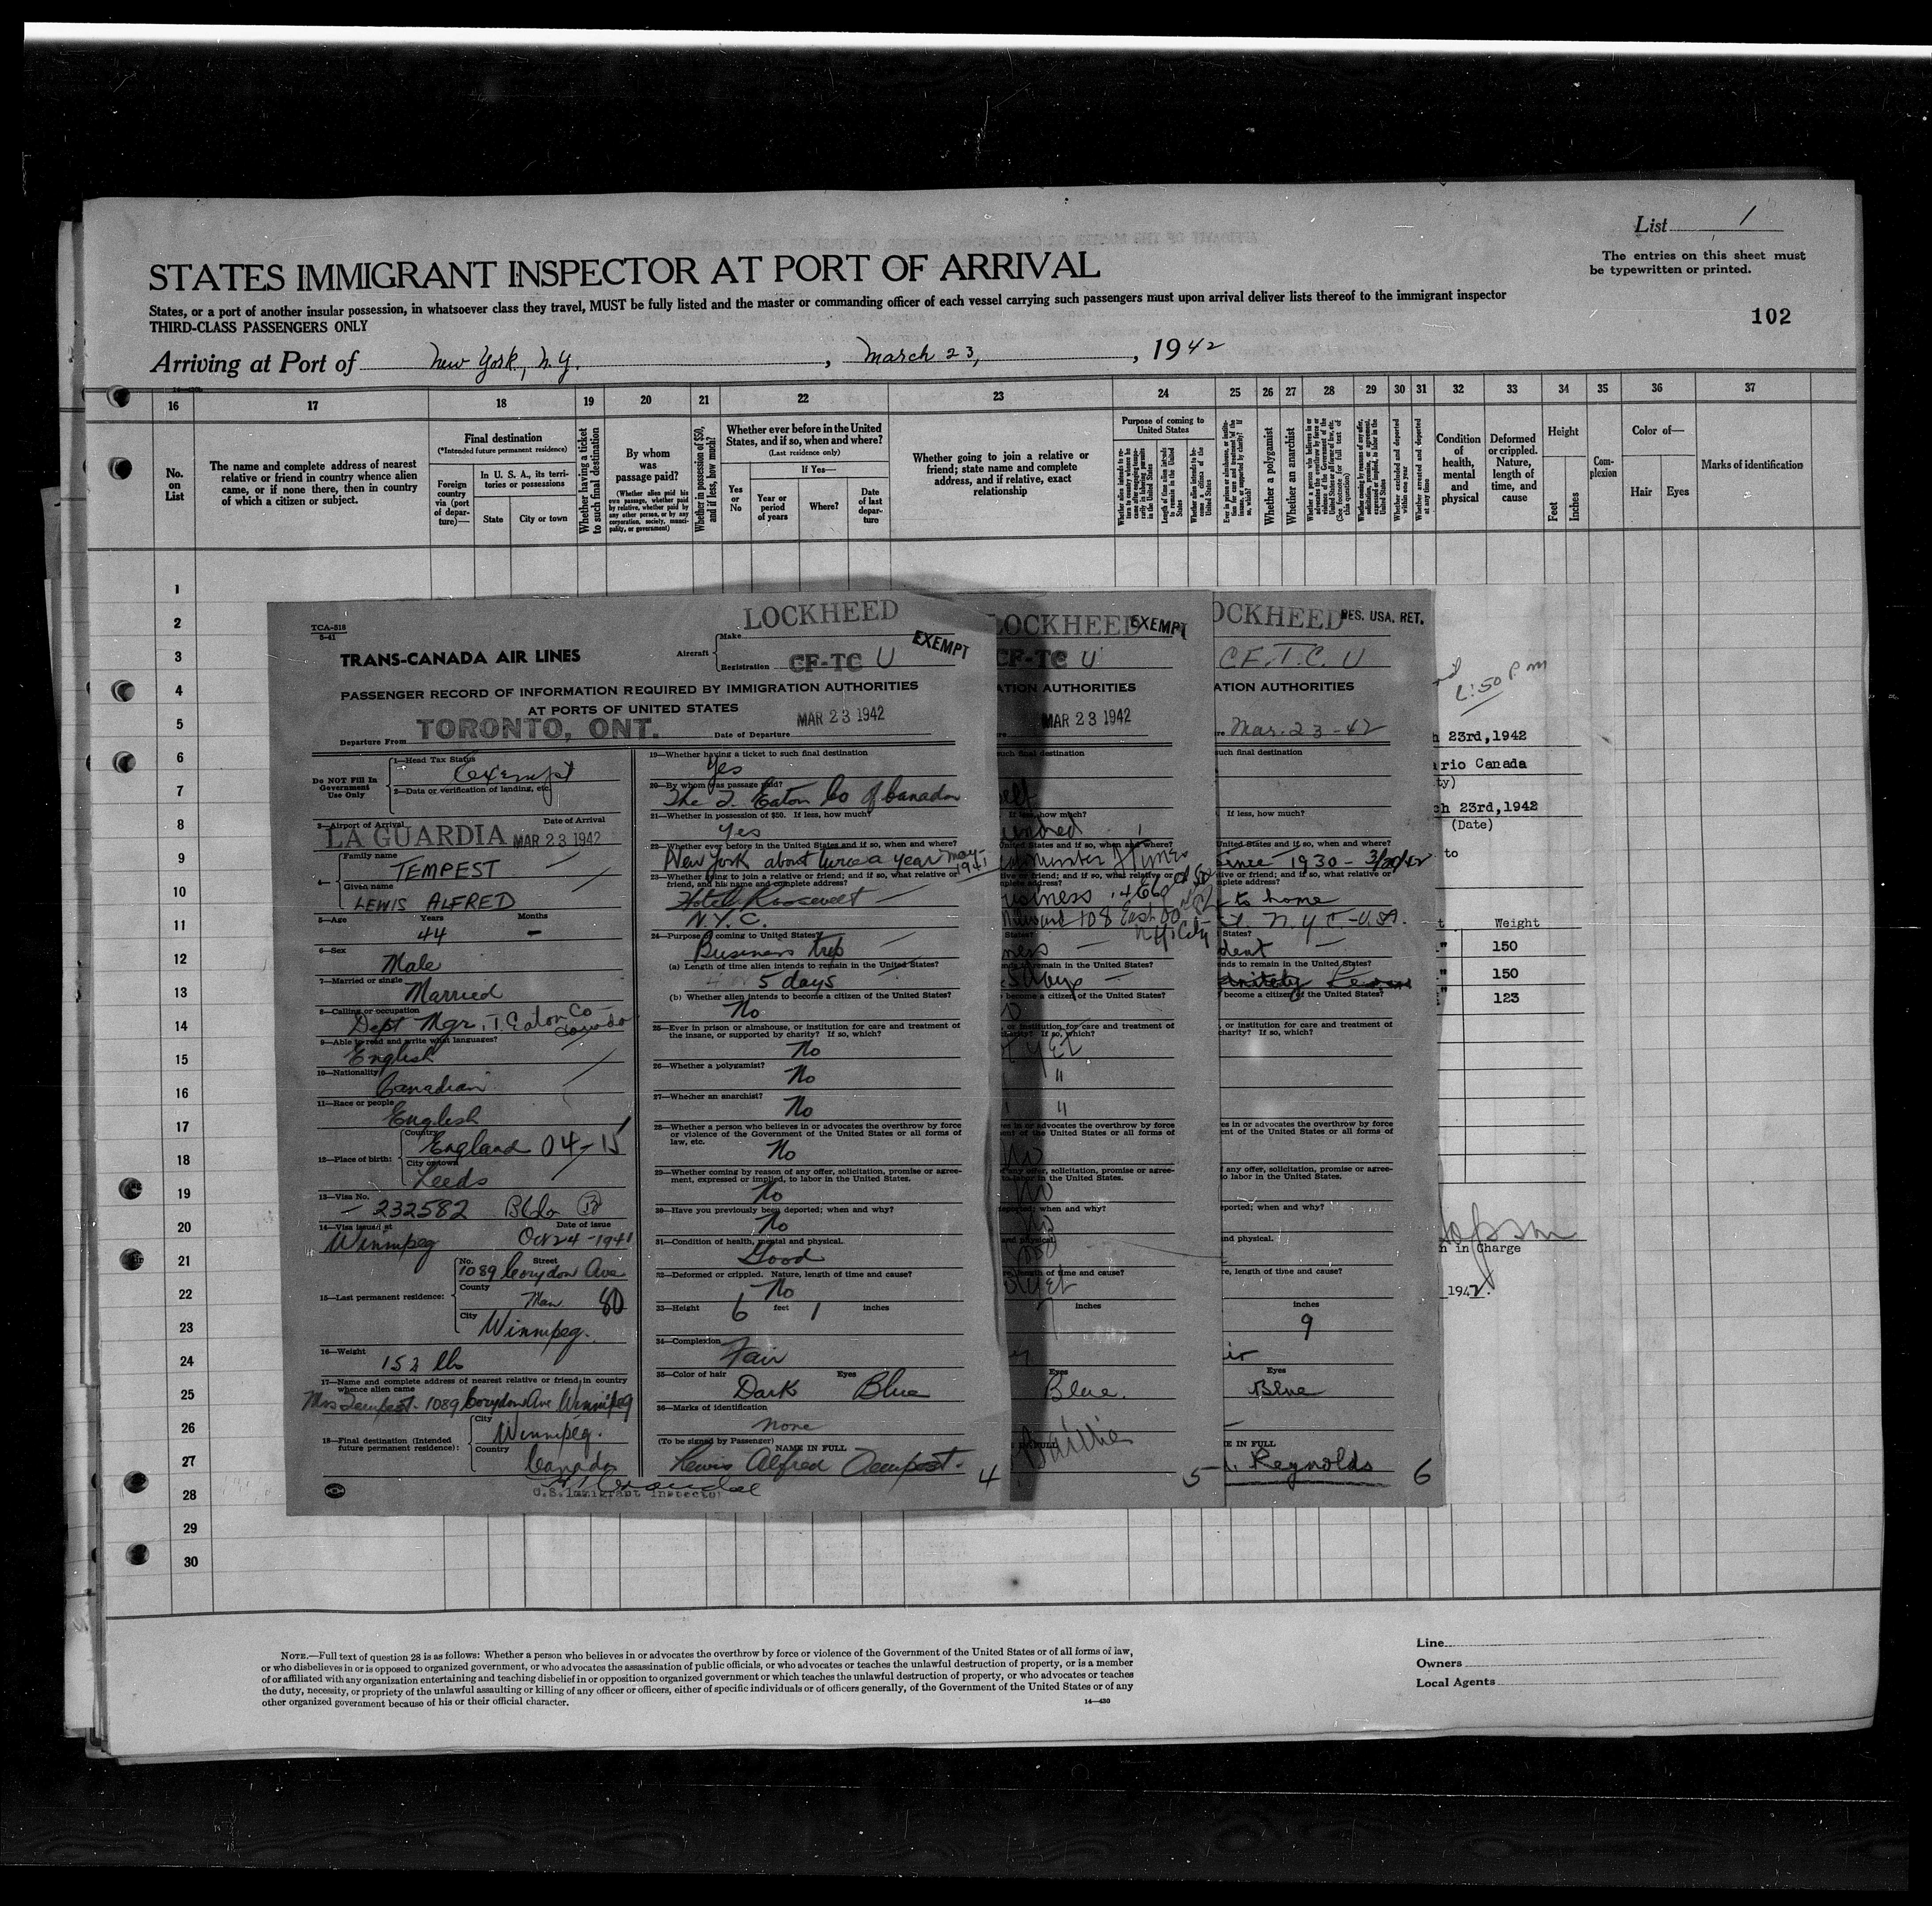 List 1
The entries on this sheet must
be typewritten or printed.
STATES IMMIGRANT INSPECTOR AT PORT OF ARRIVAL
States, or a port of another insular possession, in whatsoever class they travel, MUST be fully listed and the master or commanding officer of each vessel carrying such passengers must upon arrival deliver lists thereof to the immigrant inspector
THIRD-CLASS PASSENGERS ONLY
102
Arriving at Port of New York, N.Y., March 23, 1942
16 17 18 19 20 21 22 23 24 25 26 27 28 29 30 31 32 33 34 35 36 37
No.
on
List
The name and complete address of nearest
relative or friend in country whence alien
came, or if none there, then in country
of which a citizen or subject.
Final destination
(*Intended future permanent residence)
Foreign
country
via (port
of depar-
ture)—
In U. S. A., its terri-
tories or possessions
State
City or town
Whether having a ticket
to such final destination
By whom
was
passage paid?
(Whether alien paid his
own passage, whether paid
by relative, whether paid by
any other person, or by any
corporation, society, munici-
pality, or government)
Whether in possession of $50,
and if less, how much?
Whether ever before in the United
States, and if so, when and where?
(Last residence only)
If Yes—
Yes
or
No
Year or
period
of years
Where?
Date
of last
depar-
ture
Whether going to join a relative or
friend; state name and complete
address, and if relative, exact
relationship
Purpose of coming to
United States
Length of time alien intends
to remain in the United
States
Whether a polygamist
Whether an anarchist
Whether arrested and deported
at any time
Condition
of
health,
mental
and
physical
Deformed
or crippled.
Nature,
length of
time, and
cause
Height
Feet
Inches
Com-
plexion
Color of—
Hair
Eyes
Marks of identification
1
2
3
4
5
6
7
8
9
10
11
12
13
14
15
16
17
18
19
20
21
22
23
24
25
26
27
28
29
30
TCA-318
5-41
TRANS-CANADA AIR LINES
Aircraft
Make LOCKHEED
Registration CF-TC U
EXEMPT
PASSENGER RECORD OF INFORMATION REQUIRED BY IMMIGRATION AUTHORITIES
AT PORTS OF UNITED STATES
Departure From TORONTO, ONT.
Date of Departure MAR 23 1942
Do NOT Fill In
Government
Use Only
1—Head Tax Status
Exempt
2—Data or verification of landing, etc.
3—Airport of Arrival
Date of Arrival
LA GUARDIA MAR 23 1942
4—
Family name
TEMPEST
Given name
LEWIS ALFRED
5—Age Years Months
44 —
6—Sex
Male
7—Married or single
Married
8—Calling or occupation
Dept Mgr. T. Eaton Co
9—Able to read and write what languages?
English
10—Nationality
Canadian
11—Race or people
English
12—Place of birth:
Country
England 04-15
City or town
Leeds
13—Visa No.
232582
14—Visa issued at
Date of issue
Winnipeg Oct 24-1941
15—Last permanent residence:
No. Street
1089 Corydon Ave
County
Man 80
City
Winnipeg.
16—Weight
152 lbs
17—Name and complete address of nearest relative or friend in country
whence alien came
Mrs Tempest-1089 Corydon Ave Winnipeg
18—Final destination (Intended
future permanent residence):
City
Winnipeg.
Country
Canada
U.S. Immigrant Inspector
19—Whether having a ticket to such final destination
Yes
20—By whom was passage paid?
The T. Eaton Co of Canada
21—Whether in possession of $50. If less, how much?
Yes
22—Whether ever before in the United States and if so, when and where?
New York about twice a year May-1941
23—Whether going to join a relative or friend; and if so, what relative or
friend, and his name and complete address?
Hotel Roosevelt
N.Y.C.
24—Purpose of coming to United States?
Business trip
(a) Length of time alien intends to remain in the United States?
5 days
(b) Whether alien intends to become a citizen of the United States?
No
25—Ever in prison or almshouse, or institution for care and treatment of
the insane, or supported by charity? If so, which?
No
26—Whether a polygamist?
No
27—Whether an anarchist?
No
28—Whether a person who believes in or advocates the overthrow by force
or violence of the Government of the United States or all forms of
law, etc.
No
29—Whether coming by reason of any offer, solicitation, promise or agree-
ment, expressed or implied, to labor in the United States.
No
30—Have you previously been deported; when and why?
No
31—Condition of health, mental and physical.
Good
32—Deformed or crippled. Nature, length of time and cause?
No
33—Height 6 feet 1 inches
34—Complexion
Fair
35—Color of hair Eyes
Dark Blue
36—Marks of identification
none
(To be signed by Passenger)
NAME IN FULL
Lewis Alfred Tempest.
4
LOCKHEED
EXEMPT
CF-TC U
ATION AUTHORITIES
MAR 23 1942
such final destination
If less, how much?
108 East
N.Y. City
become a citizen of the United States?
"
"
inches
Eyes
Blue.
5
OCKHEED
RES. USA. RET.
CF. T. C. U
ATION AUTHORITIES
Mar. 23-42
such final destination
If less, how much?
United States and if so, when and where?
Since 1930 - 3/20/42
tive or friend; and if so, what relative or
plete address?
to home
N.Y.C.-U.S.A.
States?
dent
ends to remain in the United States?
become a citizen of the United States?
, or institution for care and treatment of
charity? If so, which?
es in or advocates the overthrow by force
ent of the United States or all forms of
f any offer, solicitation, promise or agree-
to labor in the United States.
eported; when and why?
nd physical.
re, length of time and cause?
inches
9
ir
Eyes
Blue
E IN FULL
Reynolds
6
6:50 Pm
h 23rd,1942
rio Canada
ty)
ch 23rd,1942
(Date)
to
t Weight
" 150
" 150
" 123
n in Charge
1942.
NOTE.—Full text of question 28 is as follows: Whether a person who believes in or advocates the overthrow by force or violence of the Government of the United States or of all forms of law,
or who disbelieves in or is opposed to organized government, or who advocates the assassination of public officials, or who advocates or teaches the unlawful destruction of property, or is a member
of or affiliated with any organization entertaining and teaching disbelief in or opposition to organized government or which teaches the unlawful destruction of property, or who advocates or teaches
the duty, necessity, or propriety of the unlawful assaulting or killing of any officer or officers, either of specific individuals or of officers generally, of the Government of the United States or of any
other organized government because of his or their official character.
14—430
Line
Owners
Local Agents